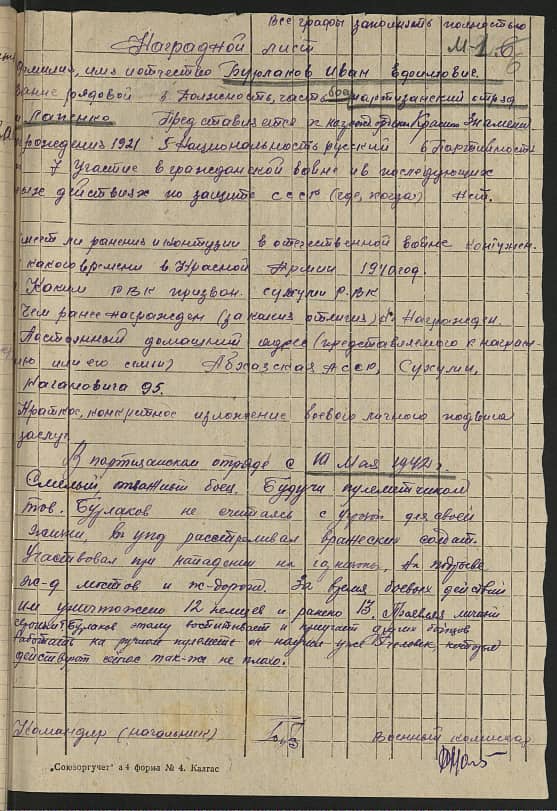 Все графы заполнять полностью
Наградной лист
М-1
фамилия, имя и отчество Бурлаков Иван
звание рядовой 3 Должность, часть партизанский отряд
Представляется к Красн Знамени
рождения 1921 5 Национальность русский 6 Партийность
7 Участие в гражданской войне и в последующих
действиях по защите СССР (где, когда) Нет.
меет ли ранения и контузии в отечественной войне контужен.
какого времени в Красной Армии 1940 год.
Каким РВК призван. Сухуми Р.ВК
Чем ранее награжден (за какие отличия) Награжден.
Постоянный домашний адрес (представляемого к награж-
ию или его семьи) Абхазская АССР, Сухуми,
Кагановича 95.
Краткое, конкретное изложение боевого личного подвига
заслуг
В партизанском отряде с 10 Мая 1942 г.
Смелый боец. Будучи пулеметчиком
тов. Бурлаков не считаясь с для своей
жизни, в упор расстреливал вражеских солдат.
Участвовал при нападении на
ж-д мостов и ж-дороги. За время боевых действий
им уничтожено 12 немцев и ранено 13
Бурлаков этому воспитывает и приучает других бойцов
работать на ручном пулемете он научил уже человек, которые
действуют сейчас так-же не плохо.
Командир (начальник) Военный комиссар
„Союзоргучет“ а4 форма № 4. Калгас